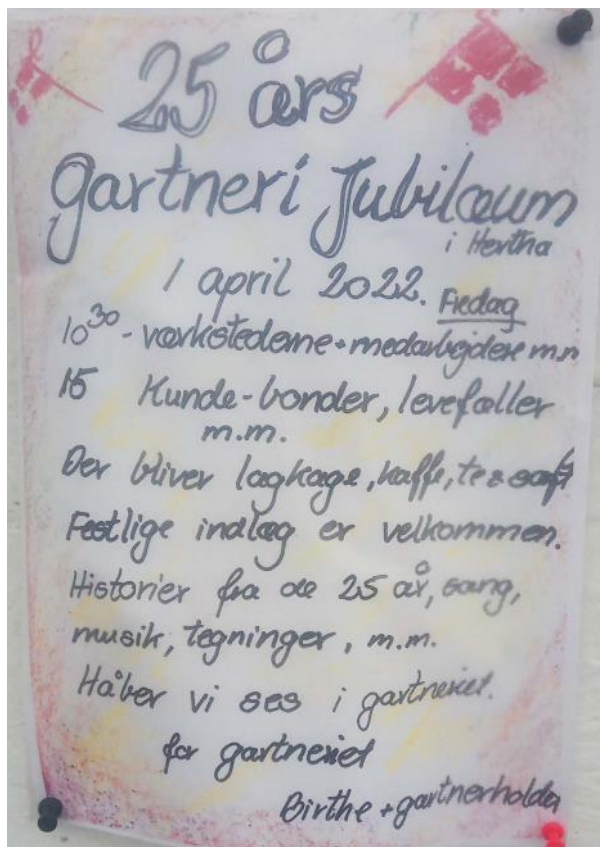 25 års
gartneri Jubilæum
i Hertha
1 april 2022. Fredag
10³⁰ - værkstederne + medarbejdere m.m
15 Kunde-bønder, levefæller
m.m.
Der bliver lagkage, kaffe, te & saft
Festlige indlæg er velkommen.
Historier fra de 25 år, sang,
musik, tegninger, m.m.
Håber vi ses i gartneriet.
for gartneriet
Birthe + gartnerholdet